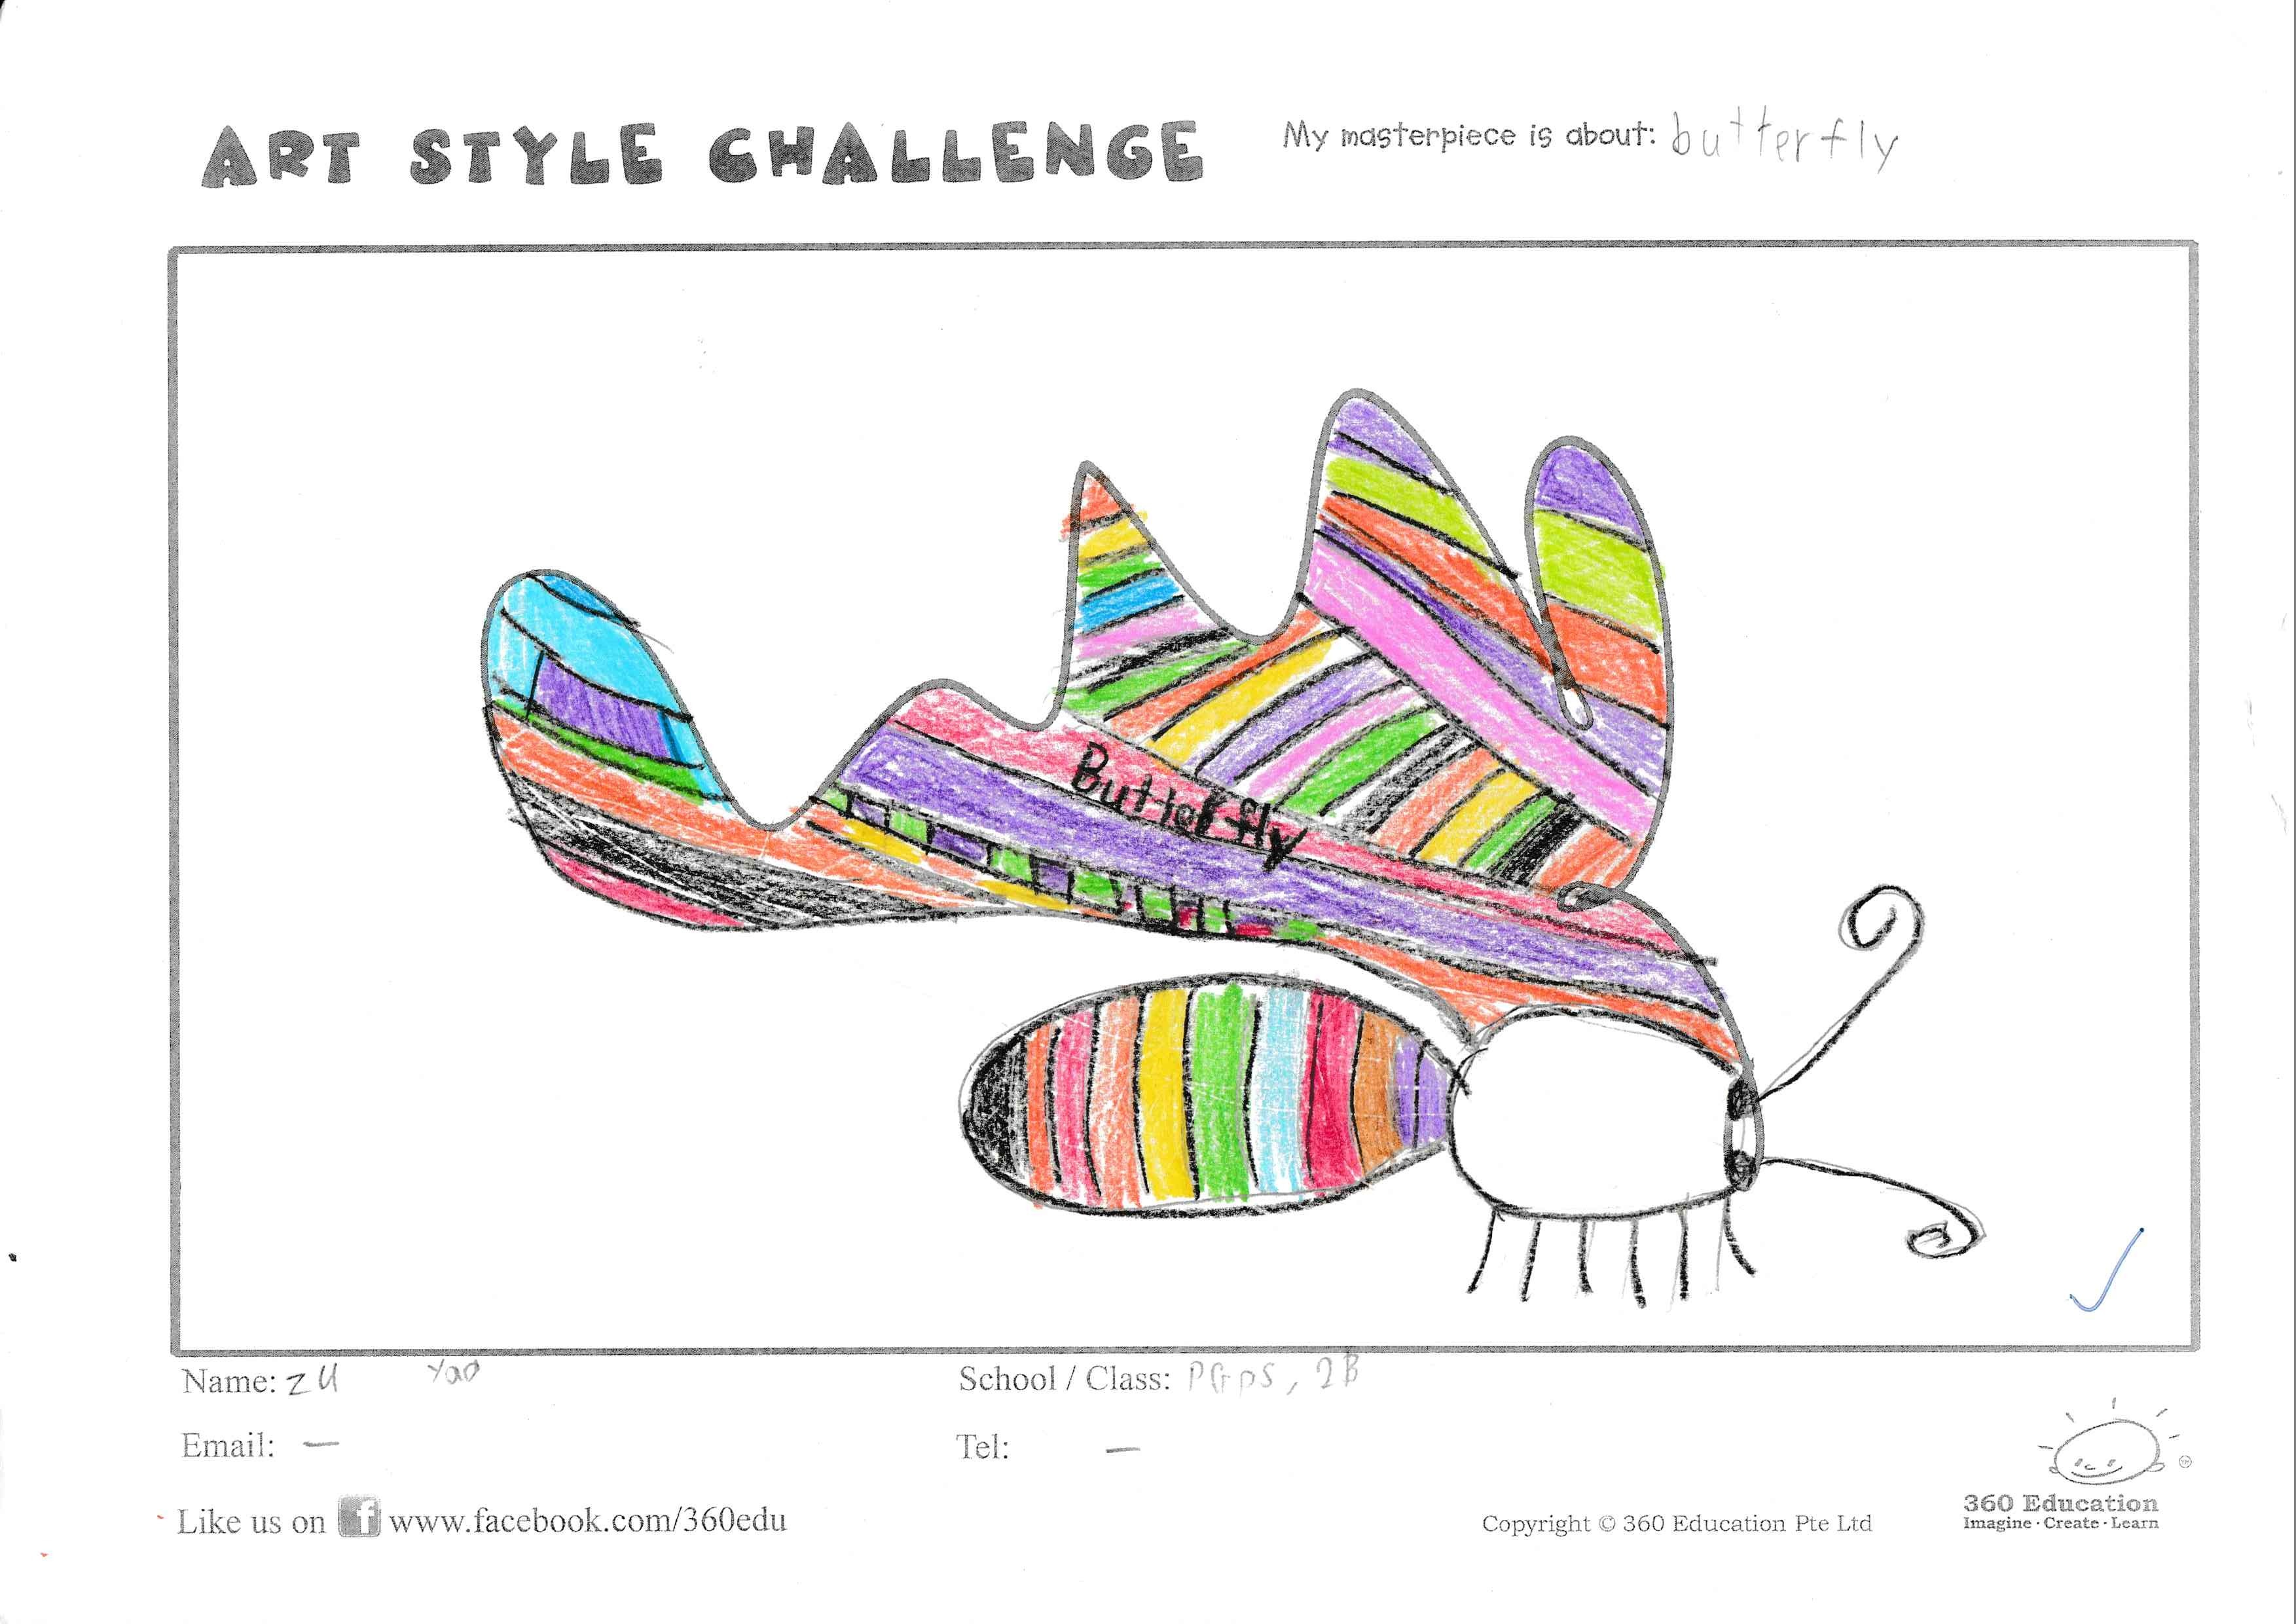 ART STYLE CHALLENGE
My masterpiece is about: butterfly
Butterfly
Name: zu yao
School / Class: PGPS, 2B
Email: —
Tel: —
Like us on f www.facebook.com/360edu
Copyright © 360 Education Pte Ltd
360 Education
Imagine · Create · Learn